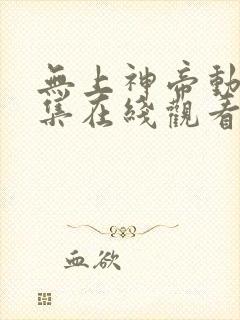 無上神帝動
集在綫觀看
血欲